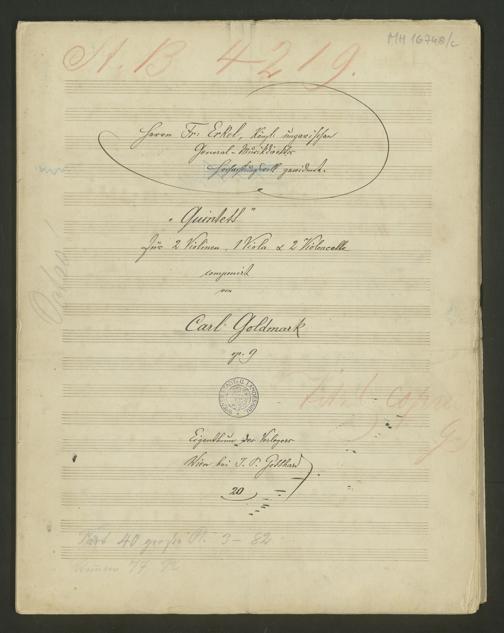 MH 16748/c
A. B 4219.
Herrn Fr: Erkel, königl. ungarischer
General-Musikdirektor
hochachtungsvoll gewidmet.
„Quintett"
für 2 Violinen, 1 Viola & 2 Violoncelle
componirt
von
Carl Goldmark
op. 9
Eigenthum des Verlegers
Wien bei J. P. Gotthard
20
40 große Pl. 3 - 82